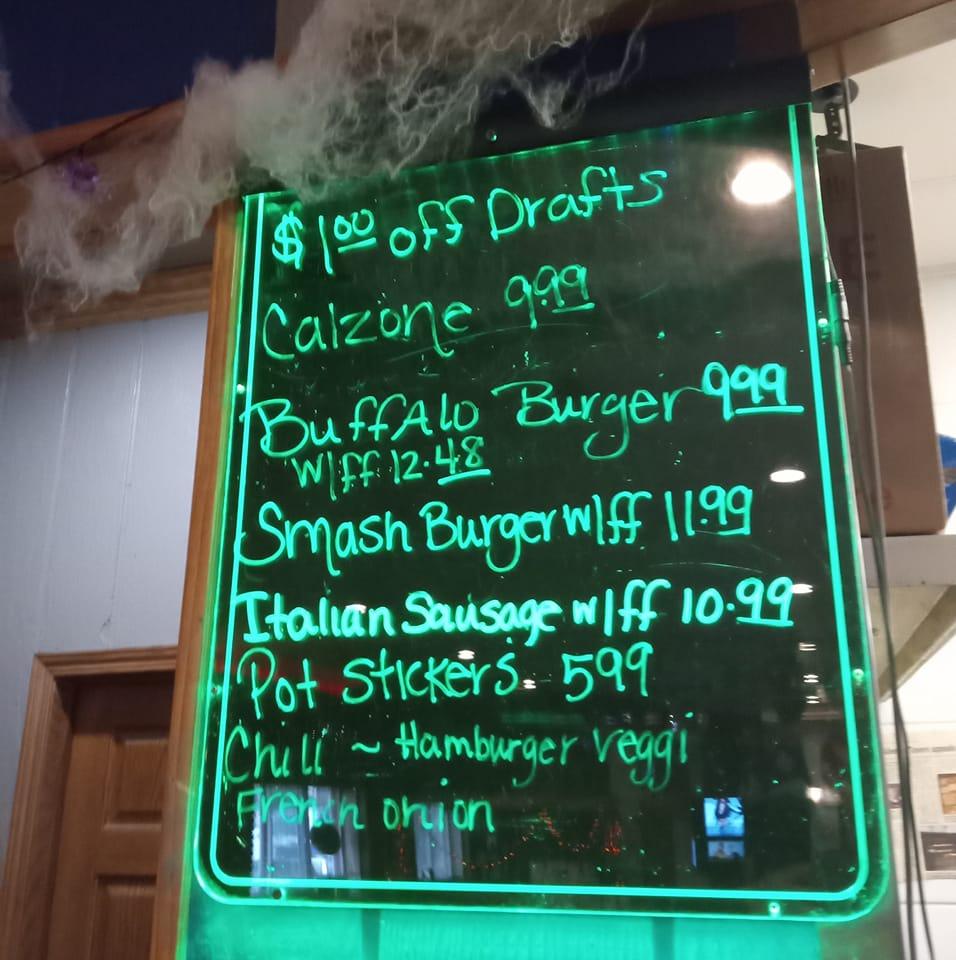 $1.00 off Drafts
Calzone 9.99
Buffalo Burger 9.99
w/ff 12.48
Smash Burger w/ff 11.99
Italian Sausage w/ff 10.99
Pot Stickers 599
Chili ~ Hamburger Veggi
French onion